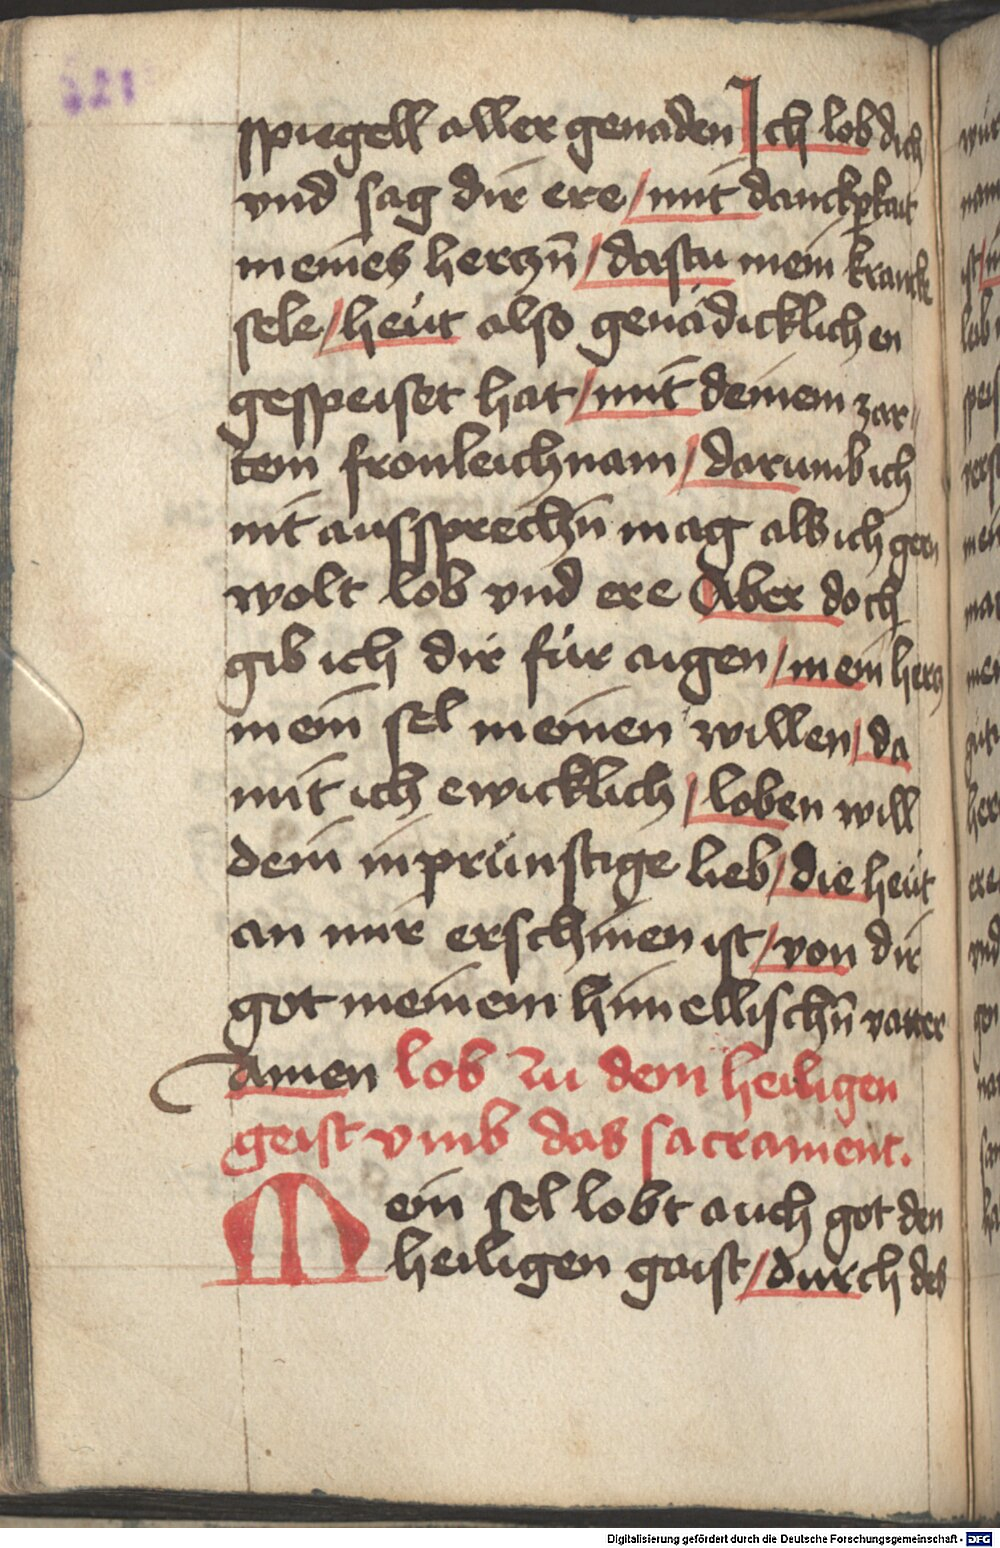 spiegell aller genaden Ich lob dich
vnd sag dir ere / mit danckperkait
meines hertzn̄ / dastu mein krancke
sele / heüt also genädicklichen
gespeiset hat / mit deinem zar-
tem fronleichnam / darumb ich
nit aussprechn̄ mag als ich gern
wolt lob vnd ere Aber doch
gib ich dir für augen / mein hertz
mein sel meinen willen / da
mit ich ewicklich / loben will
dein inprünstige lieb / die heüt
an mir erschinen ist / von dir
got meinem himellischn̄ vatter
Amen lob zu dem heiligen
geist vmb das sacrament.
Mein sel lobt auch got den
heiligen gaist / durch des
Digitalisierung gefördert durch die Deutsche Forschungsgemeinschaft - DFG